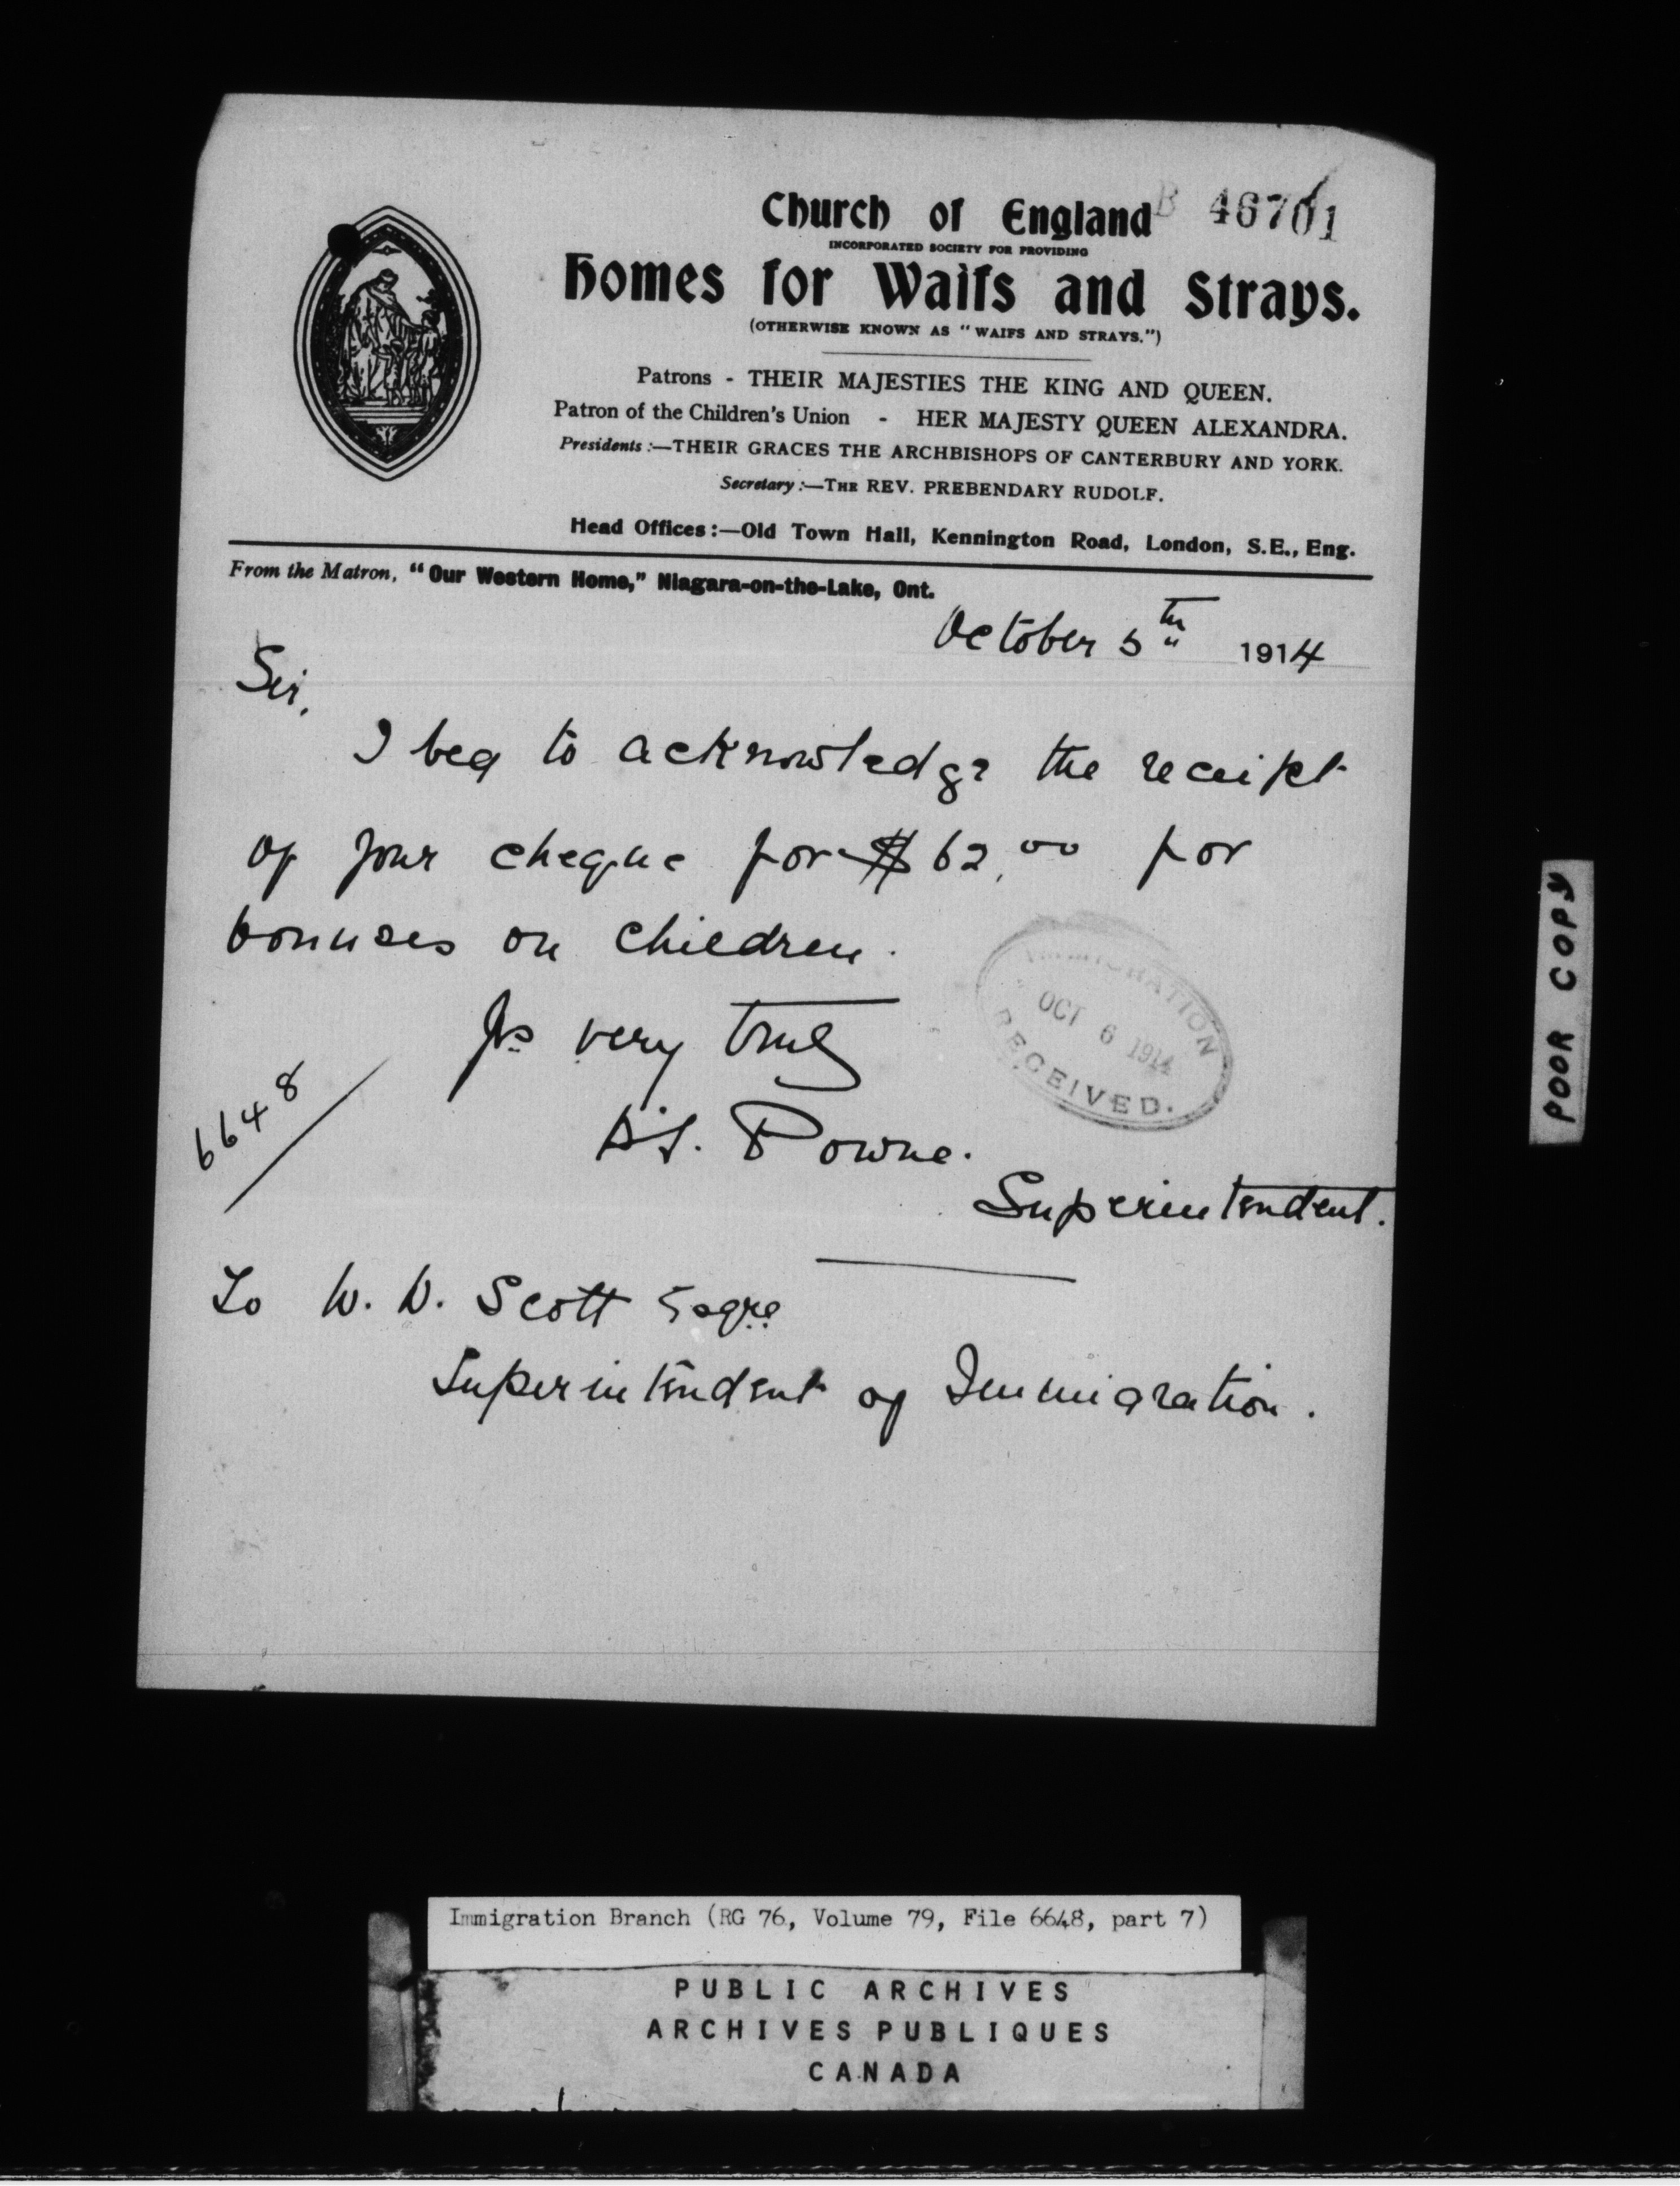 B 46701
Church of England
INCORPORATED SOCIETY FOR PROVIDING
Homes for Waifs and Strays.
(OTHERWISE KNOWN AS "WAIFS AND STRAYS.")
Patrons - THEIR MAJESTIES THE KING AND QUEEN.
Patron of the Children's Union - HER MAJESTY QUEEN ALEXANDRA.
Presidents:—THEIR GRACES THE ARCHBISHOPS OF CANTERBURY AND YORK.
Secretary:—THE REV. PREBENDARY RUDOLF.
Head Offices:—Old Town Hall, Kennington Road, London, S.E., Eng.
From the Matron, "Our Western Home," Niagara-on-the-Lake, Ont.
October 5th 1914
Sir,
I beg to acknowledge the receipt
of your cheque for $62.00 for
bonuses on children.
IMMIGRATION
OCT 6 1914
RECEIVED.
Yrs very truly
Powne.
Superintendent.
6648
To W. D. Scott Esqre
Superintendent of Immigration.
POOR COPY
Immigration Branch (RG 76, Volume 79, File 6648, part 7)
PUBLIC ARCHIVES
ARCHIVES PUBLIQUES
CANADA